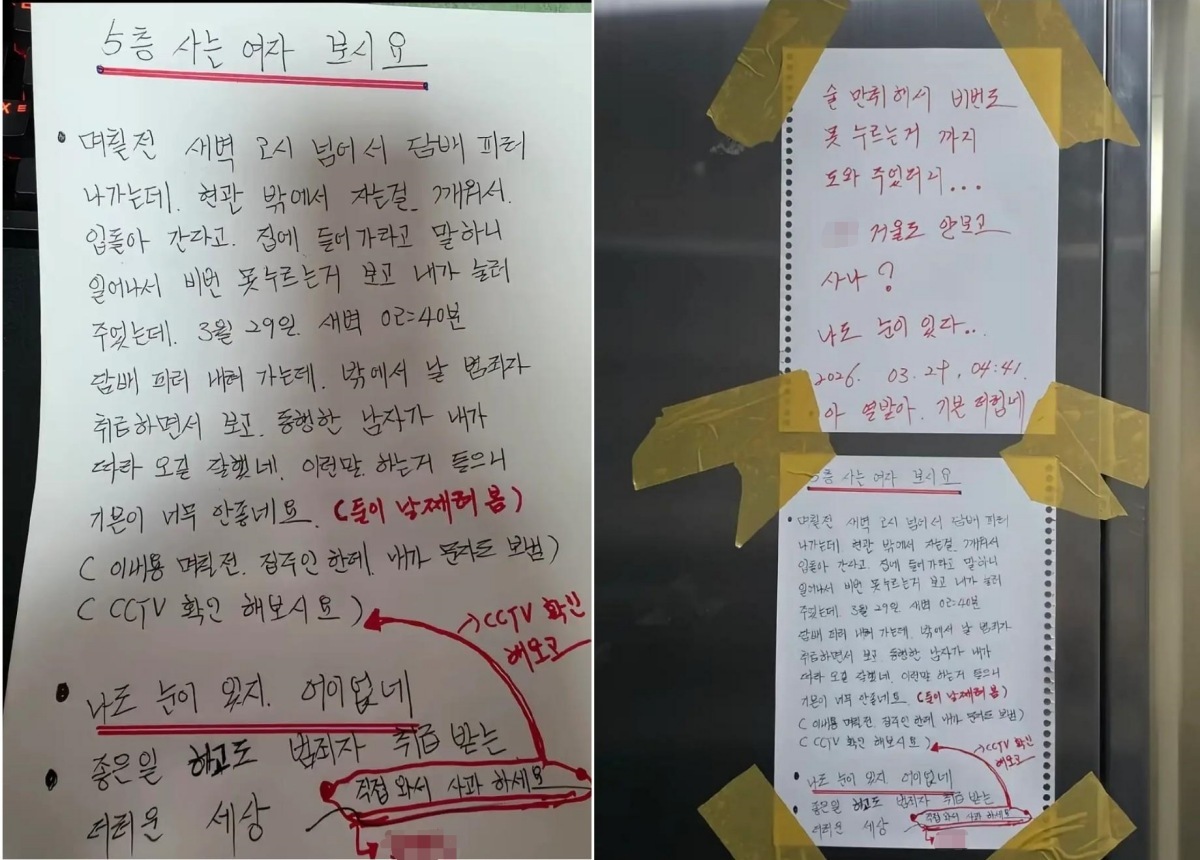 5층 사는 여자 보시요
• 며칠전 새벽 2시 넘어서 담배 피러
나가는데. 현관 밖에서 자는걸 깨워서.
입돌아 간라고. 집에 들어가라고 말하니
일어나서 비번 못누르는거 보고 내가 눌러
주었는데. 3월 29일. 새벽 02:40분
담배 피러 내려 가는데. 밖에서 날 범죄자
취급하면서 보고. 동행한 남자가 내가
따라 오길 잘했네. 이런말 하는거 들으니
기분이 너무 안좋네요. (둘이 날 째려 봄)
( 이내용 며칠전. 집주인 한테. 내가 문자도 보냄)
( CCTV 확인 해보시요 )
→ CCTV 확인
해보고
• 나도 눈이 있지. 어이없네
• 좋은일 하고도 범죄자 취급 받는
더러운 세상
직접 와서 사과 하세요
술 만취해서 비번도
못 누르는거 까지
도와 주었더니...
거울도 안보고
사나?
나도 눈이 있다..
2026. 03. 29, 04:41.
아 열받아. 기분 더럽네
5층 사는 여자 보시요
• 며칠전 새벽 2시 넘어서 담배 피러
나가는데. 현관 밖에서 자는걸 깨워서
입돌아 간라고. 집에 들어가라고 말하니
일어나서 비번 못누르는거 보고 내가 눌러
주었는데. 3월 29일 새벽 02:40분
담배 피러 내려 가는데. 밖에서 날 범죄자
취급하면서 보고 동행한 남자가 내가
따라 오길 잘했네. 이런말 하는거 들으니
기분이 너무 안좋네요. (둘이 날째려 봄)
( 이내용 며칠전. 집주인 한테. 내가 문자도 보냄)
( CCTV 확인 해보시요 )
→ CCTV 확인
해보고
• 나도 눈이 있지. 어이없네
• 좋은일 하고도 범죄자 취급 받는
더러운 세상
직접 와서 사과 하세요